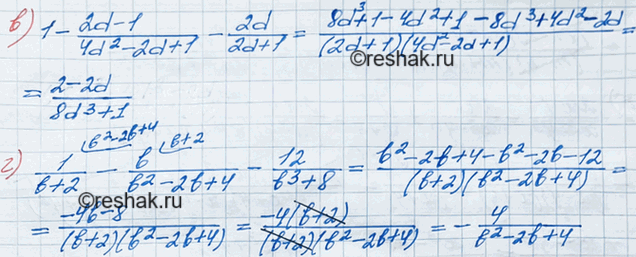 в) 1 - (2d-1)/(4d²-2d+1) - 2d/(2d+1) = (8d³+1-4d²+1-8d³+4d²-2d)/((2d+1)(4d²-2d+1)) =
©reshak.ru
= (2-2d)/(8d³+1)
г) 1/(b+2) [b²-2b+4] - b/(b²-2b+4) [b+2] - 12/(b³+8) = (b²-2b+4-b²-2b-12)/((b+2)(b²-2b+4)) =
©reshak.ru
= (-4b-8)/((b+2)(b²-2b+4)) = -4(b+2)/((b+2)(b²-2b+4)) = - 4/(b²-2b+4)